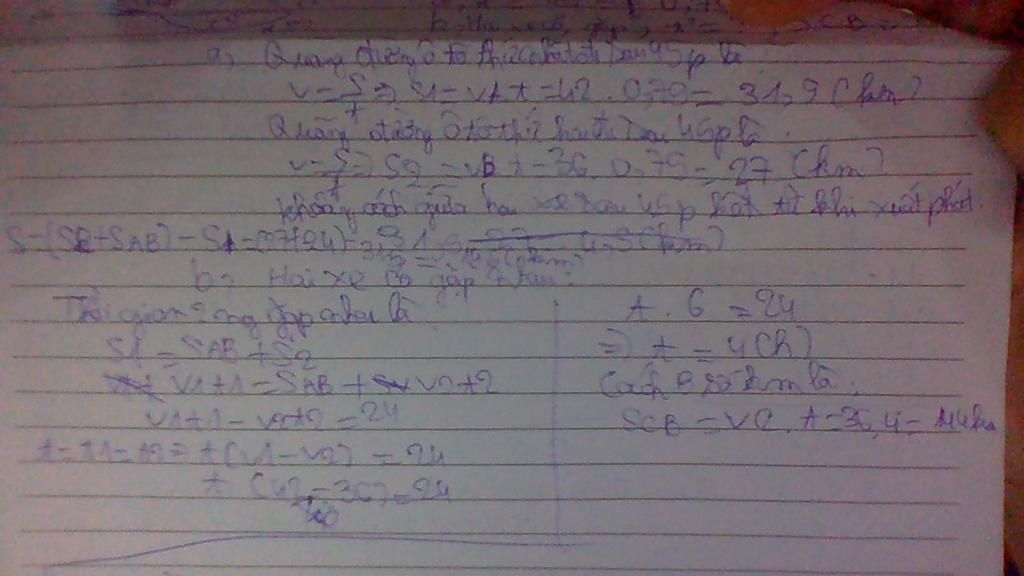 b, Hai
a, Quãng đường ô tô thứ nhất đi sau 45p là
v = S/t => S1 = vA.t = 42 . 0,75 = 31,9 (km)
Quãng đường ô tô thứ hai đi sau 45p là.
v = S/t => S2 = vB t = 36. 0,75 = 27 (km)
khoảng cách giữa hai xe sau 45p kể từ khi xuất phát
S = (S2 + SAB) - S1 = (27+24) - 31,5
b, Hai xe có gặp nhau.
Thời gian 2 ng gặp nhau là
S1 = SAB + S2
v1t1 = SAB + v2t2
v1t1 - v2t2 = 24
t = t1 = t2 => t(v1 - v2) = 24
t (42 - 36) = 24
t . 6 = 24
=> t = 4 (h)
Cách B số km là.
SCB = v2. t = 36,4 = 144km